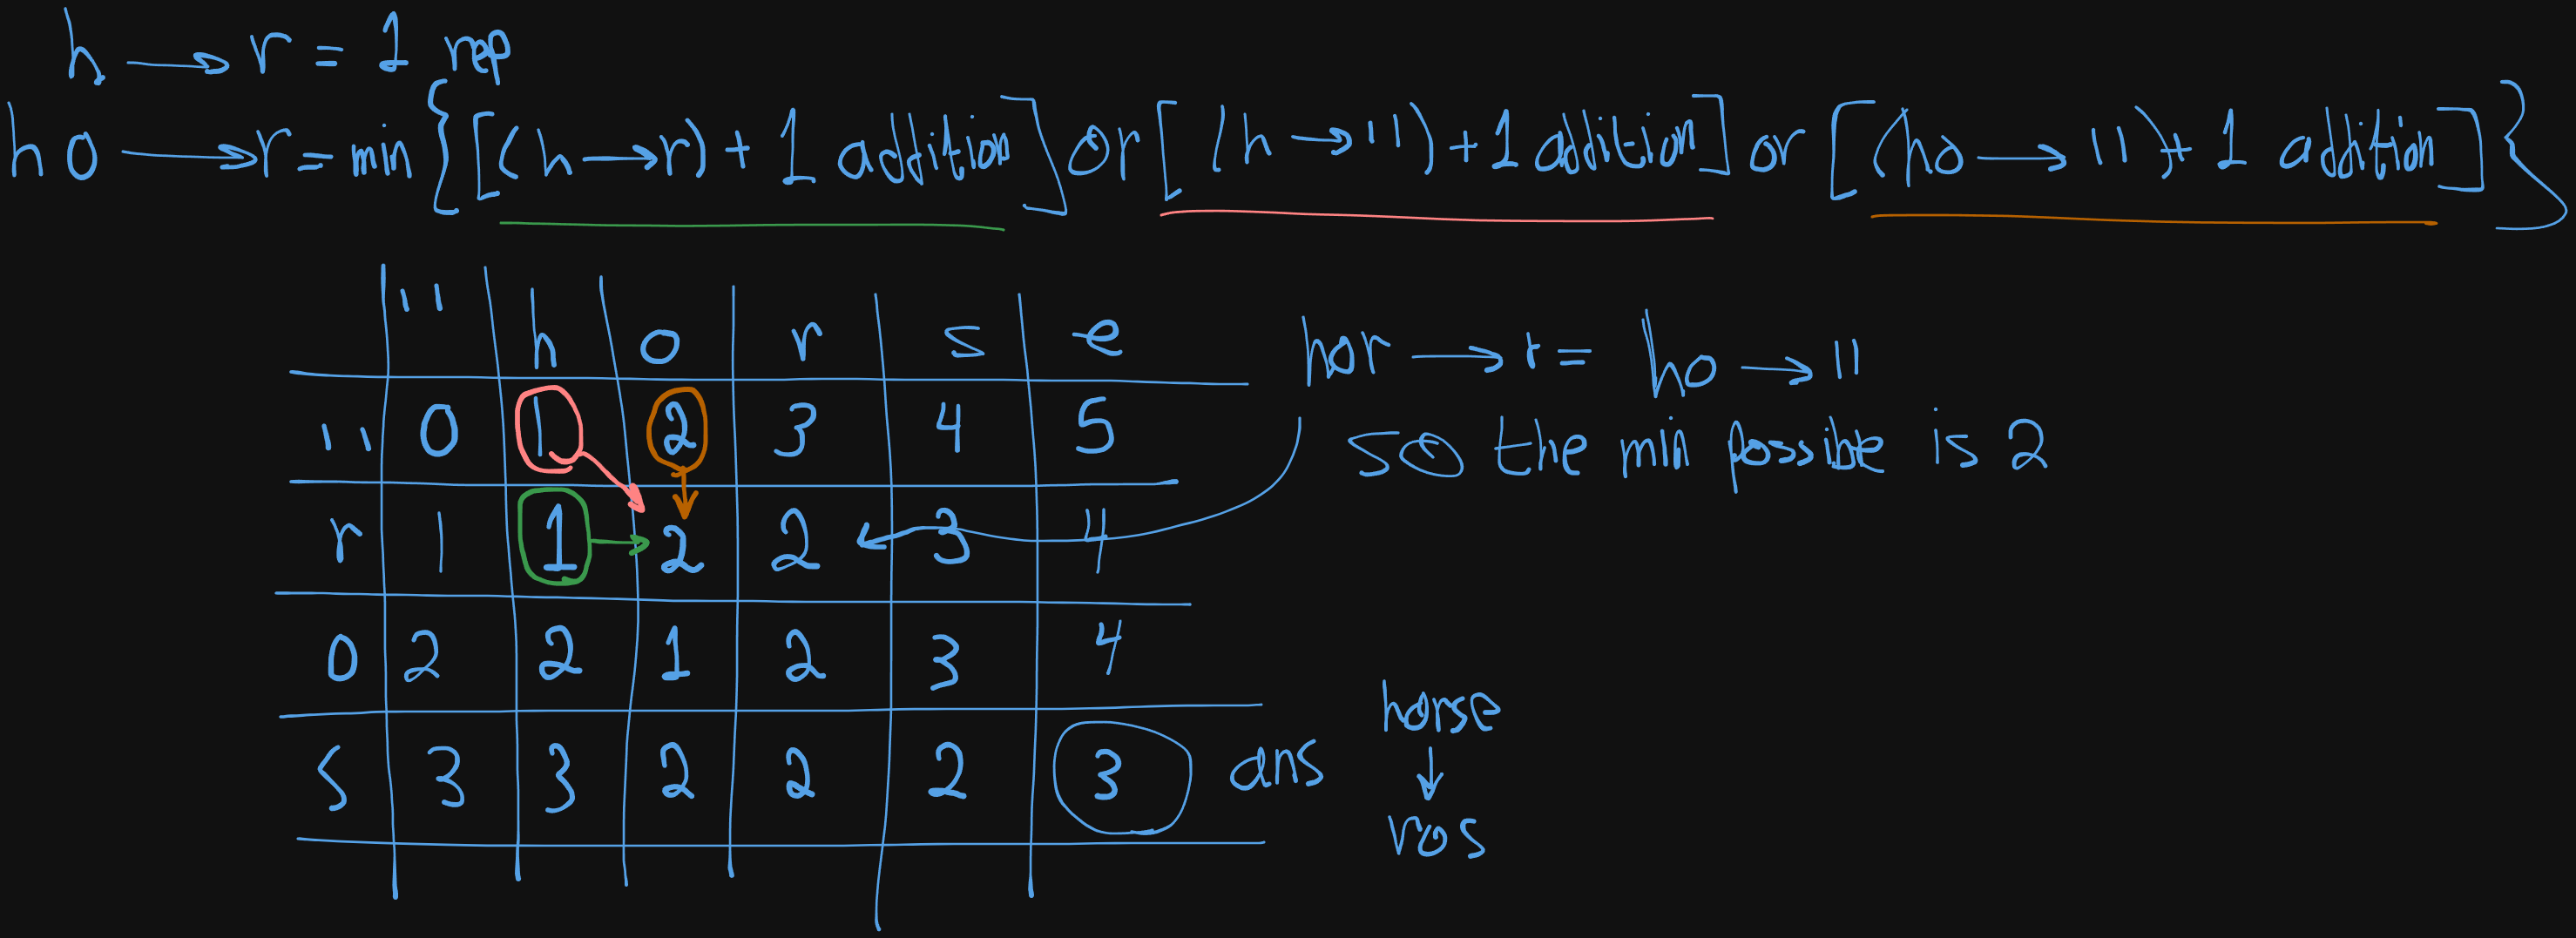 h → r = 1 rep
ho → r = min { [ (h → r) + 1 addition ] or [ (h → '') + 1 addition ] or [ (ho → '') + 1 addition ] }
'' h o r s e
'' 0 1 2 3 4 5
r 1 1 2 2 3 4
o 2 2 1 2 3 4
s 3 3 2 2 2 3 ans
hor → r = ho → ''
so the min possible is 2
horse
↓
ros